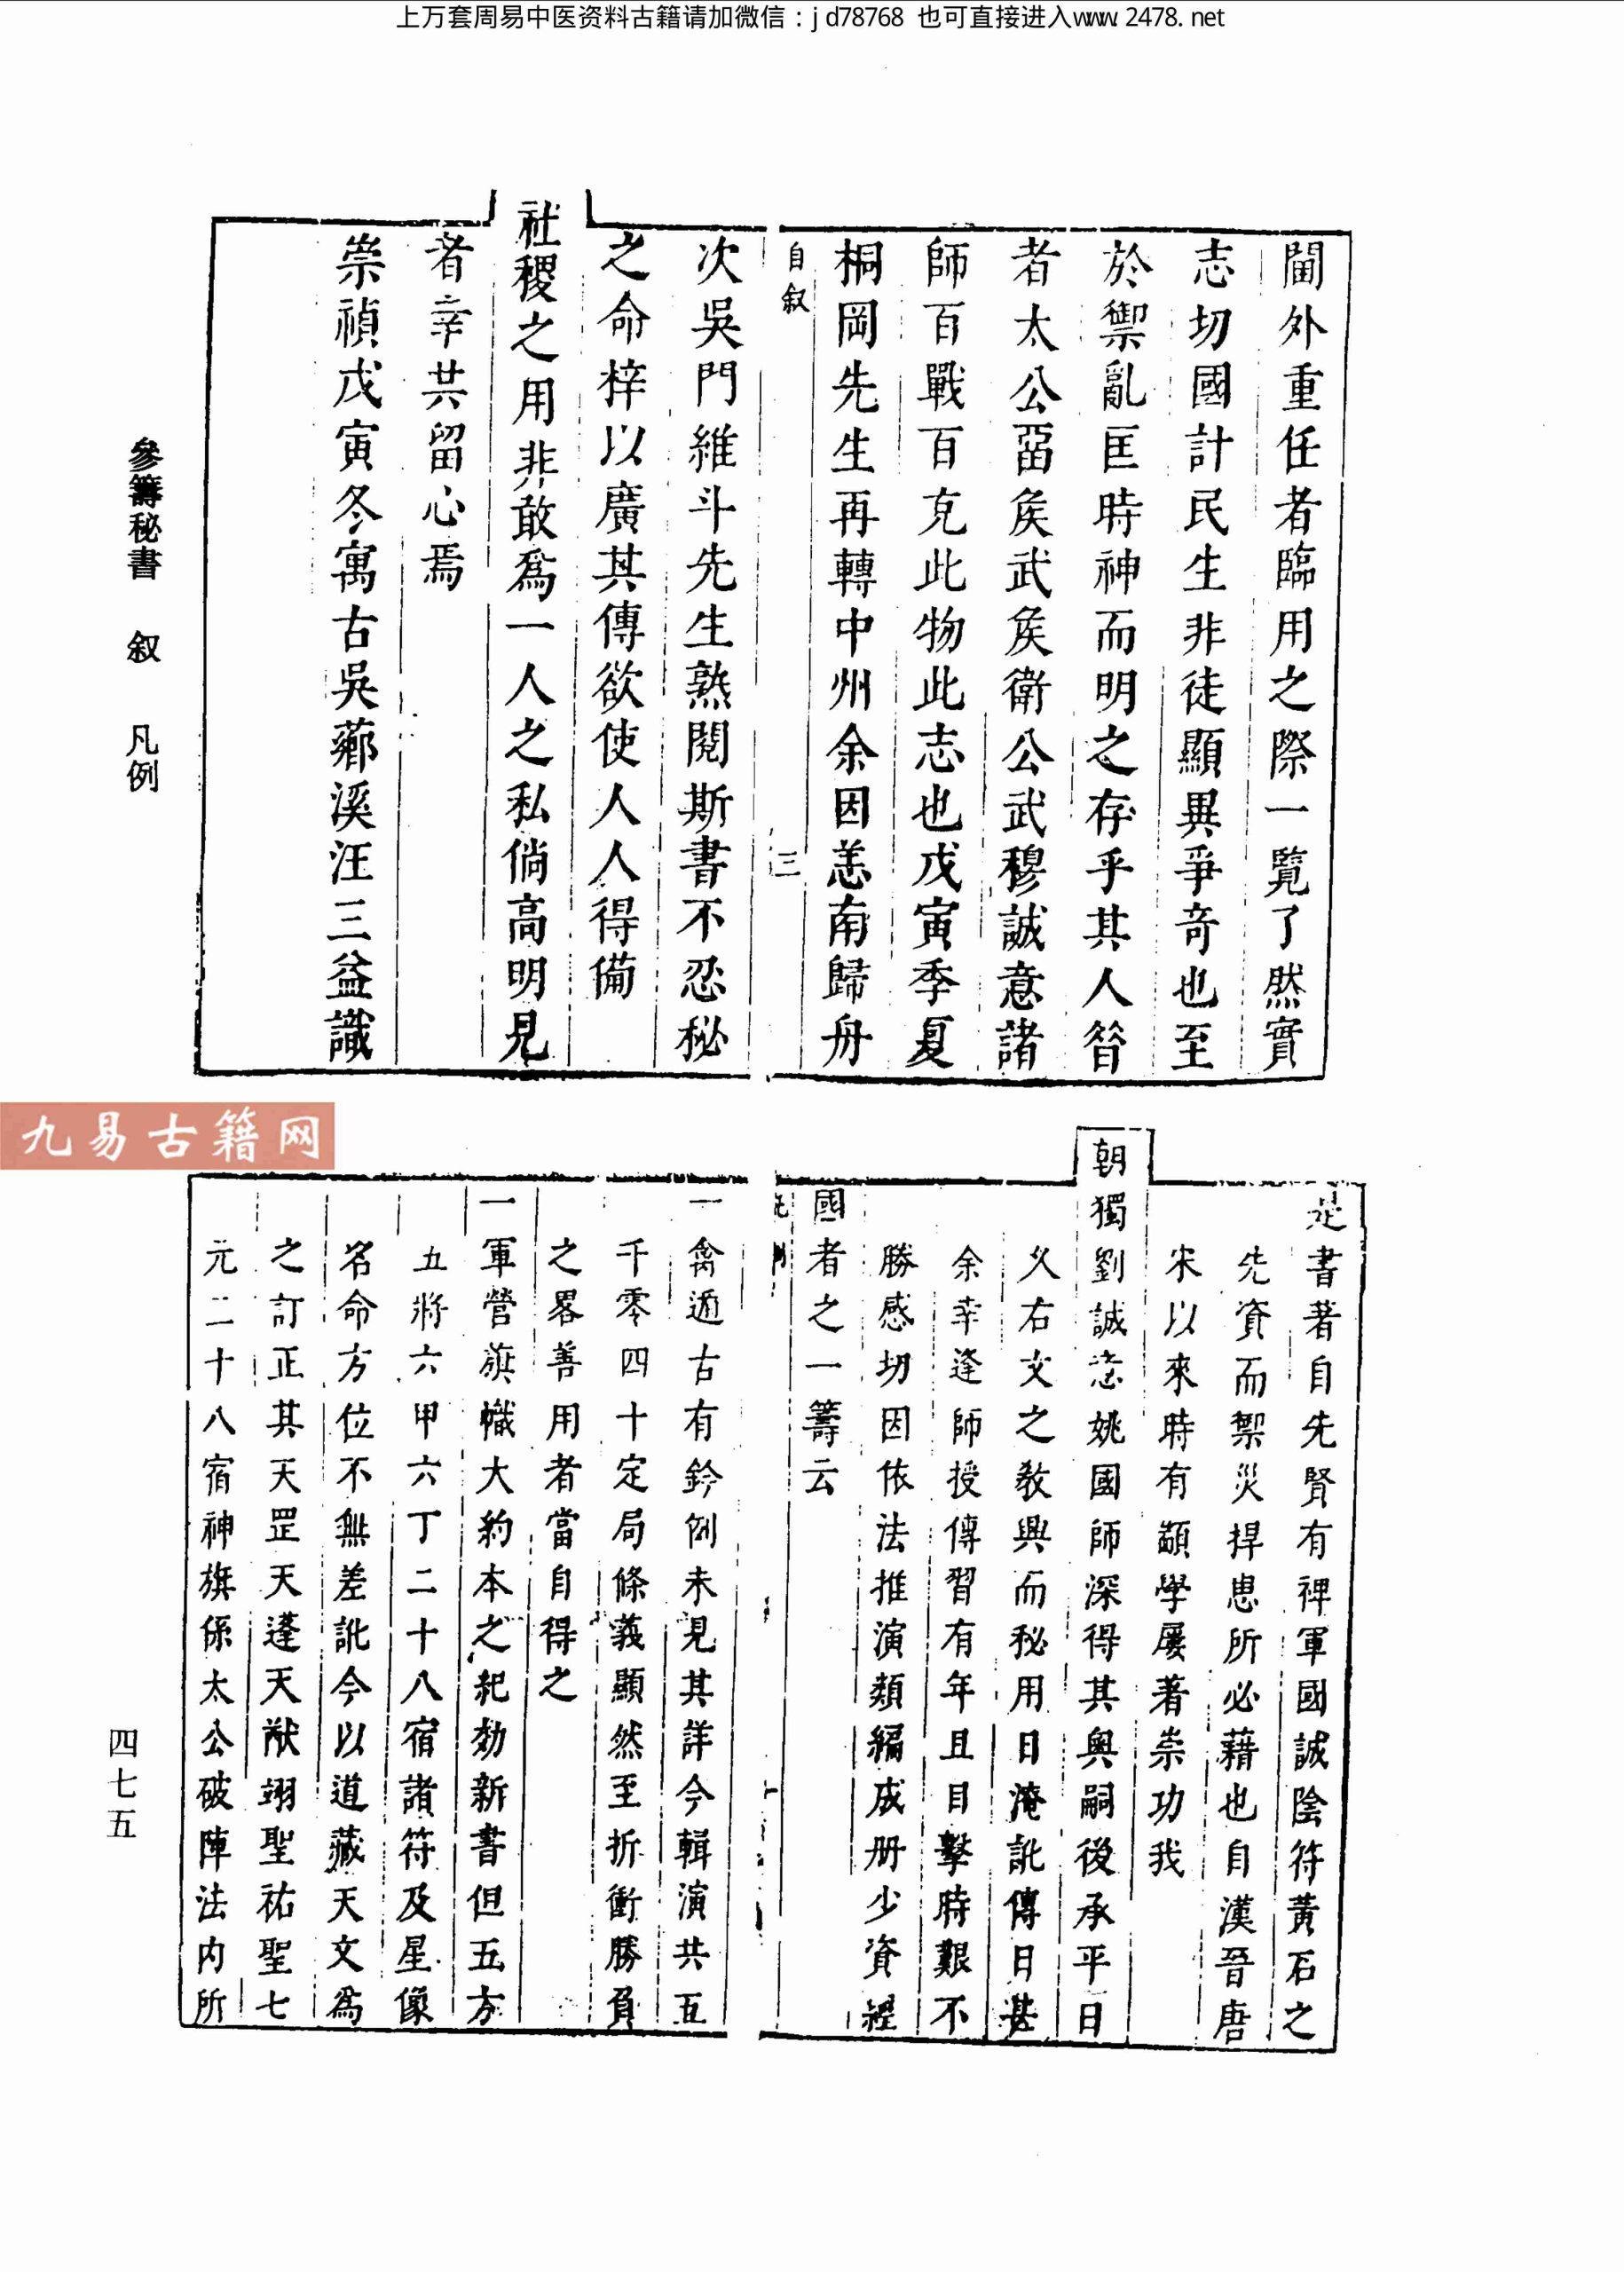 上万套周易中医资料古籍请加微信：jd78768 也可直接进入www.2478.net
閫外重任者臨用之際一覽了然實
志切國計民生非徒顯異爭奇也至
於禦亂匡時神而明之存乎其人昝
者太公畱矦武矦衛公武穆誠意諸
師百戰百克此物此志也戊寅季夏
桐岡先生再轉中州余因恙南歸舟
自叙
三
次吳門維斗先生熟閱斯書不忍秘
之命梓以廣其傳欲使人人得備
社稷之用非敢爲一人之私倘高明見
者幸共留心焉
崇禎戊寅冬寓古吳薌溪汪三益識
參籌秘書 叙 凡例
九易古籍网
是書著自先賢有裨軍國誠陰符黃石之
先資而禦災捍患所必藉也自漢晉唐
宋以來時有顓學屢著崇功我
朝獨劉誠意姚國師深得其奧嗣後承平日
久右文之教興而秘用日淹訛傳日甚
余幸逢師授傳習有年且目擊時艱不
勝感切因依法推演類編成册少資經
國者之一籌云
凡例
一禽遁古有鈐例未見其詳今輯演共五
千零四十定局條義顯然至折衝勝負
之畧善用者當自得之
一軍營旗幟大約本之紀効新書但五方
五將六甲六丁二十八宿諸符及星像
名命方位不無差訛今以道藏天文爲
之訂正其天罡天蓬天猷翊聖祐聖七
元二十八宿神旗係太公破陣法内所
四七五